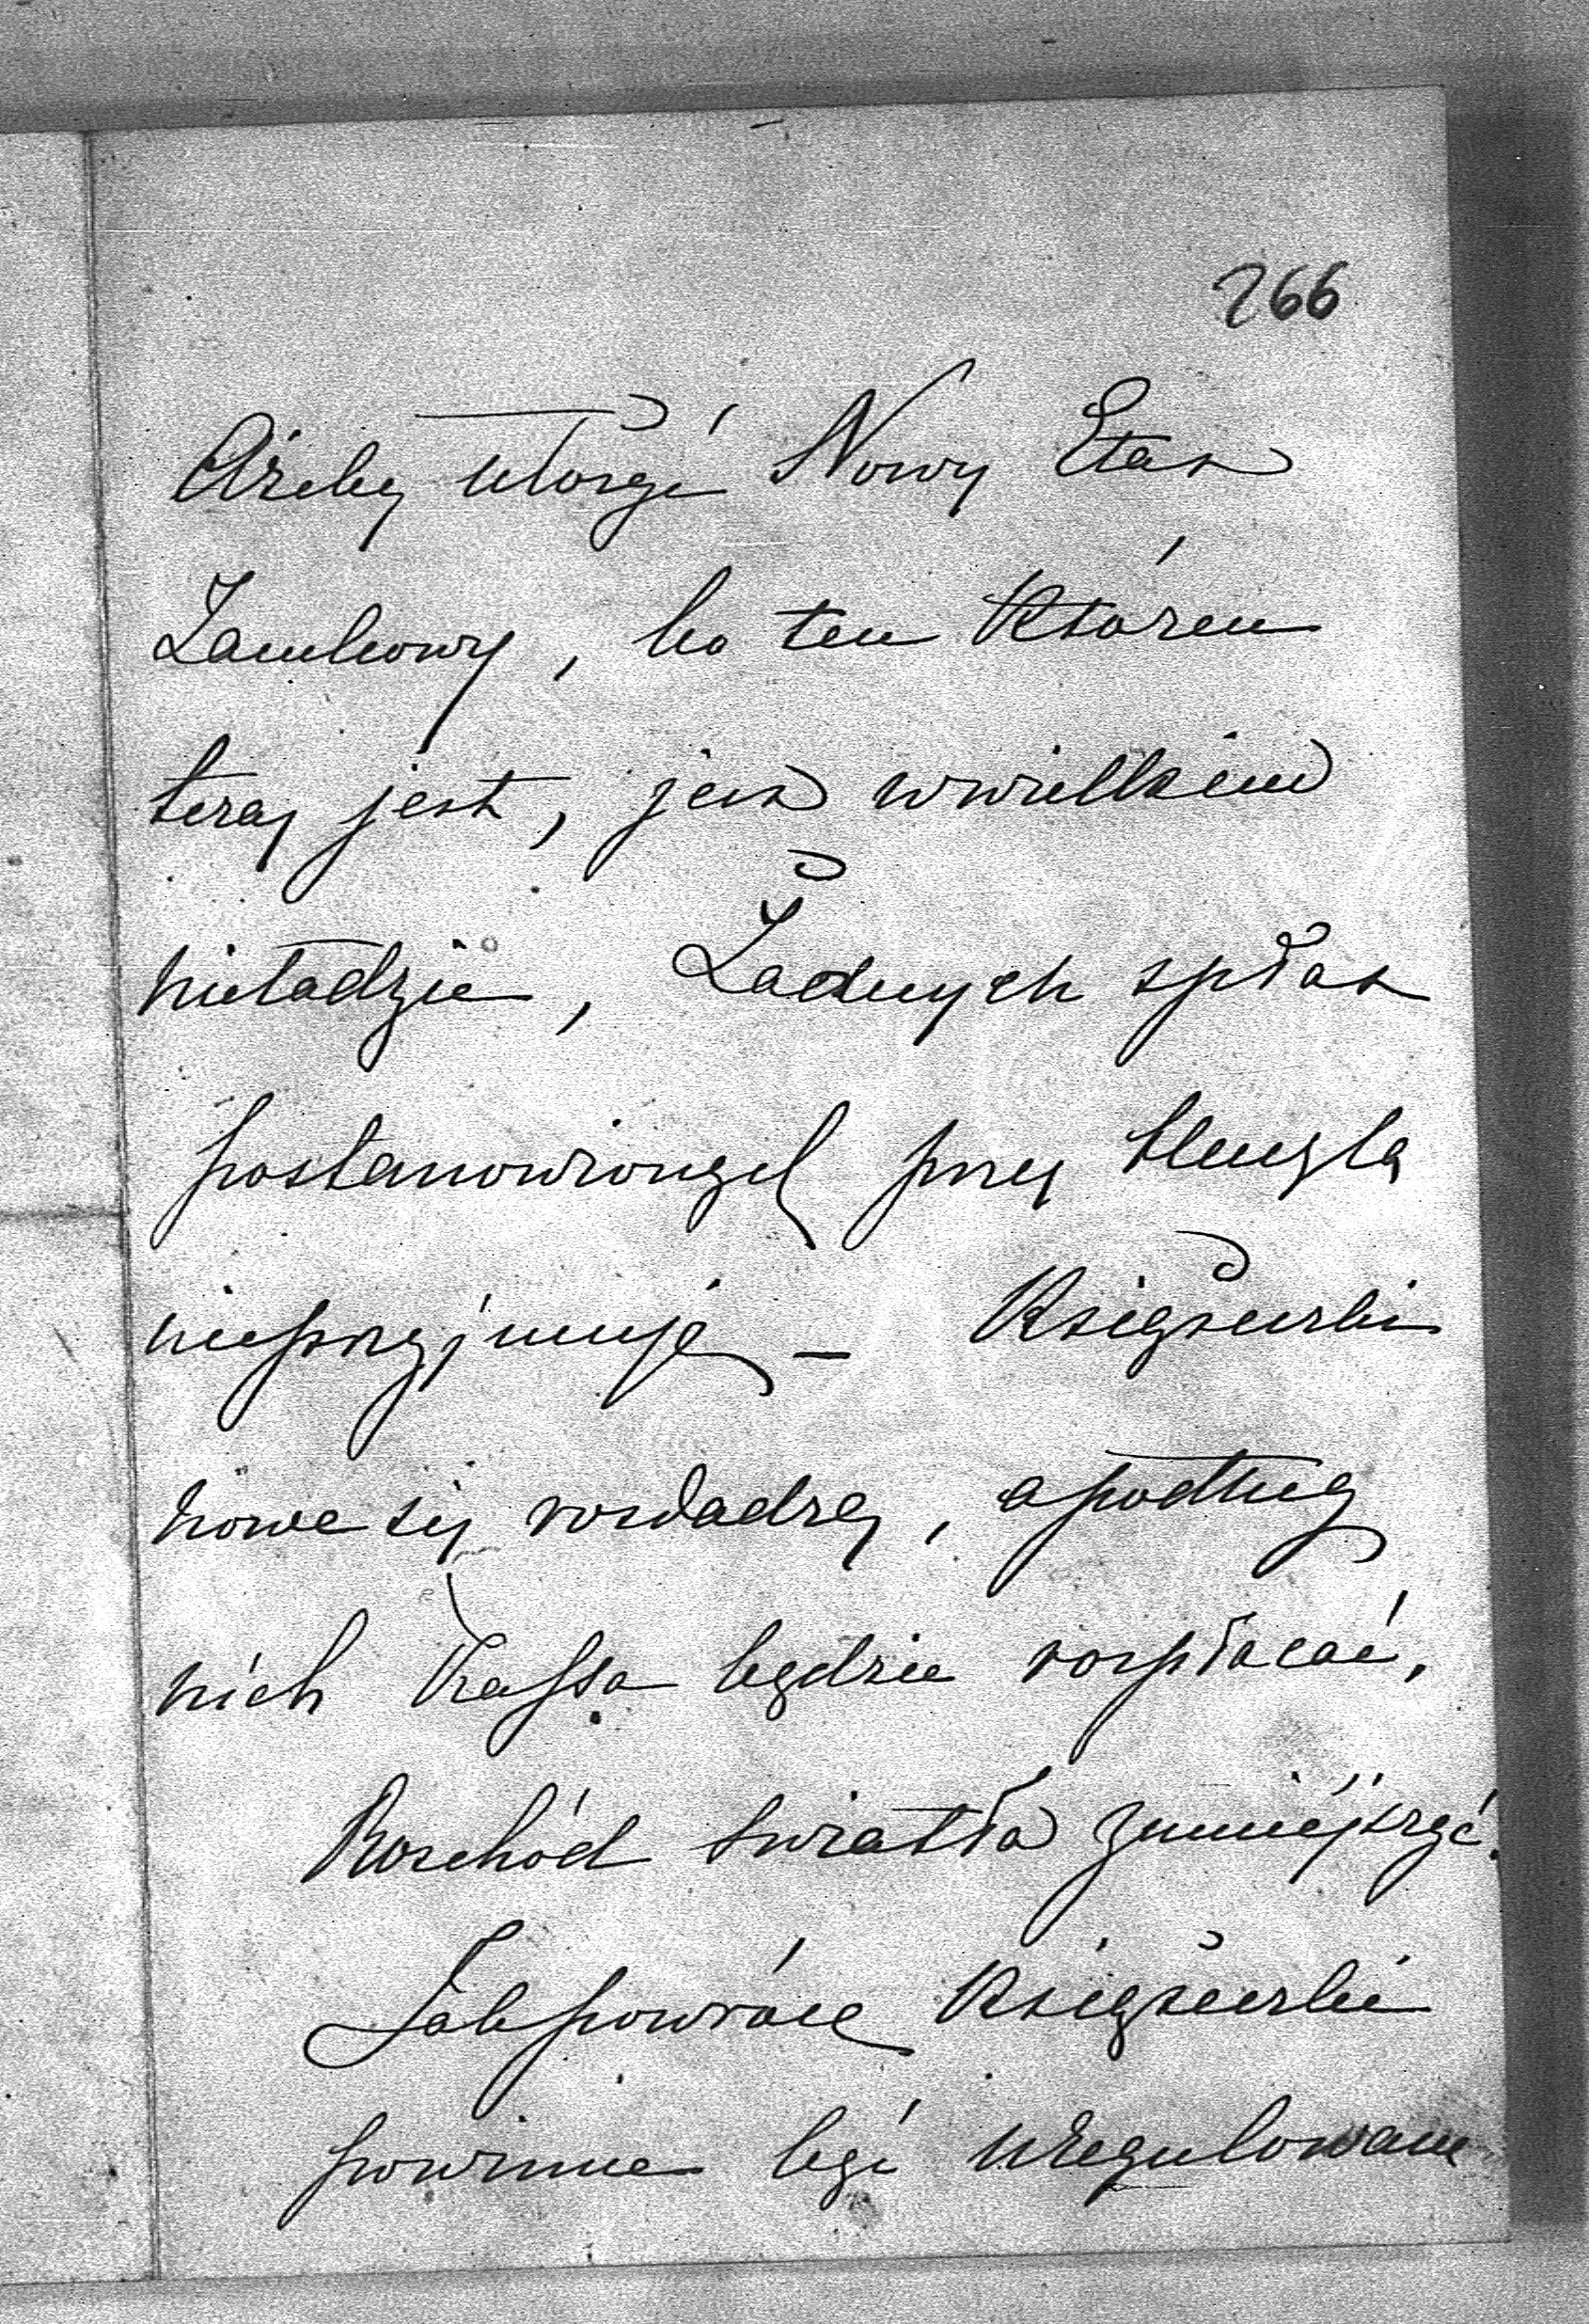 266
Ażeby ułożyć Nowy Etat
Zamkowy, bo ten któren
teraz jest, jest w wielkiem
niełdzie, Żadnych spłat
postanowionych przy
nieprzyjmuję — Książeczki
nowe się rozdadzą, a podług
nich Kassa będzie rozpłacać,
Rozchód światła zmniejszyć.
Jak powrócę Książeczki
powinne być uregulowane